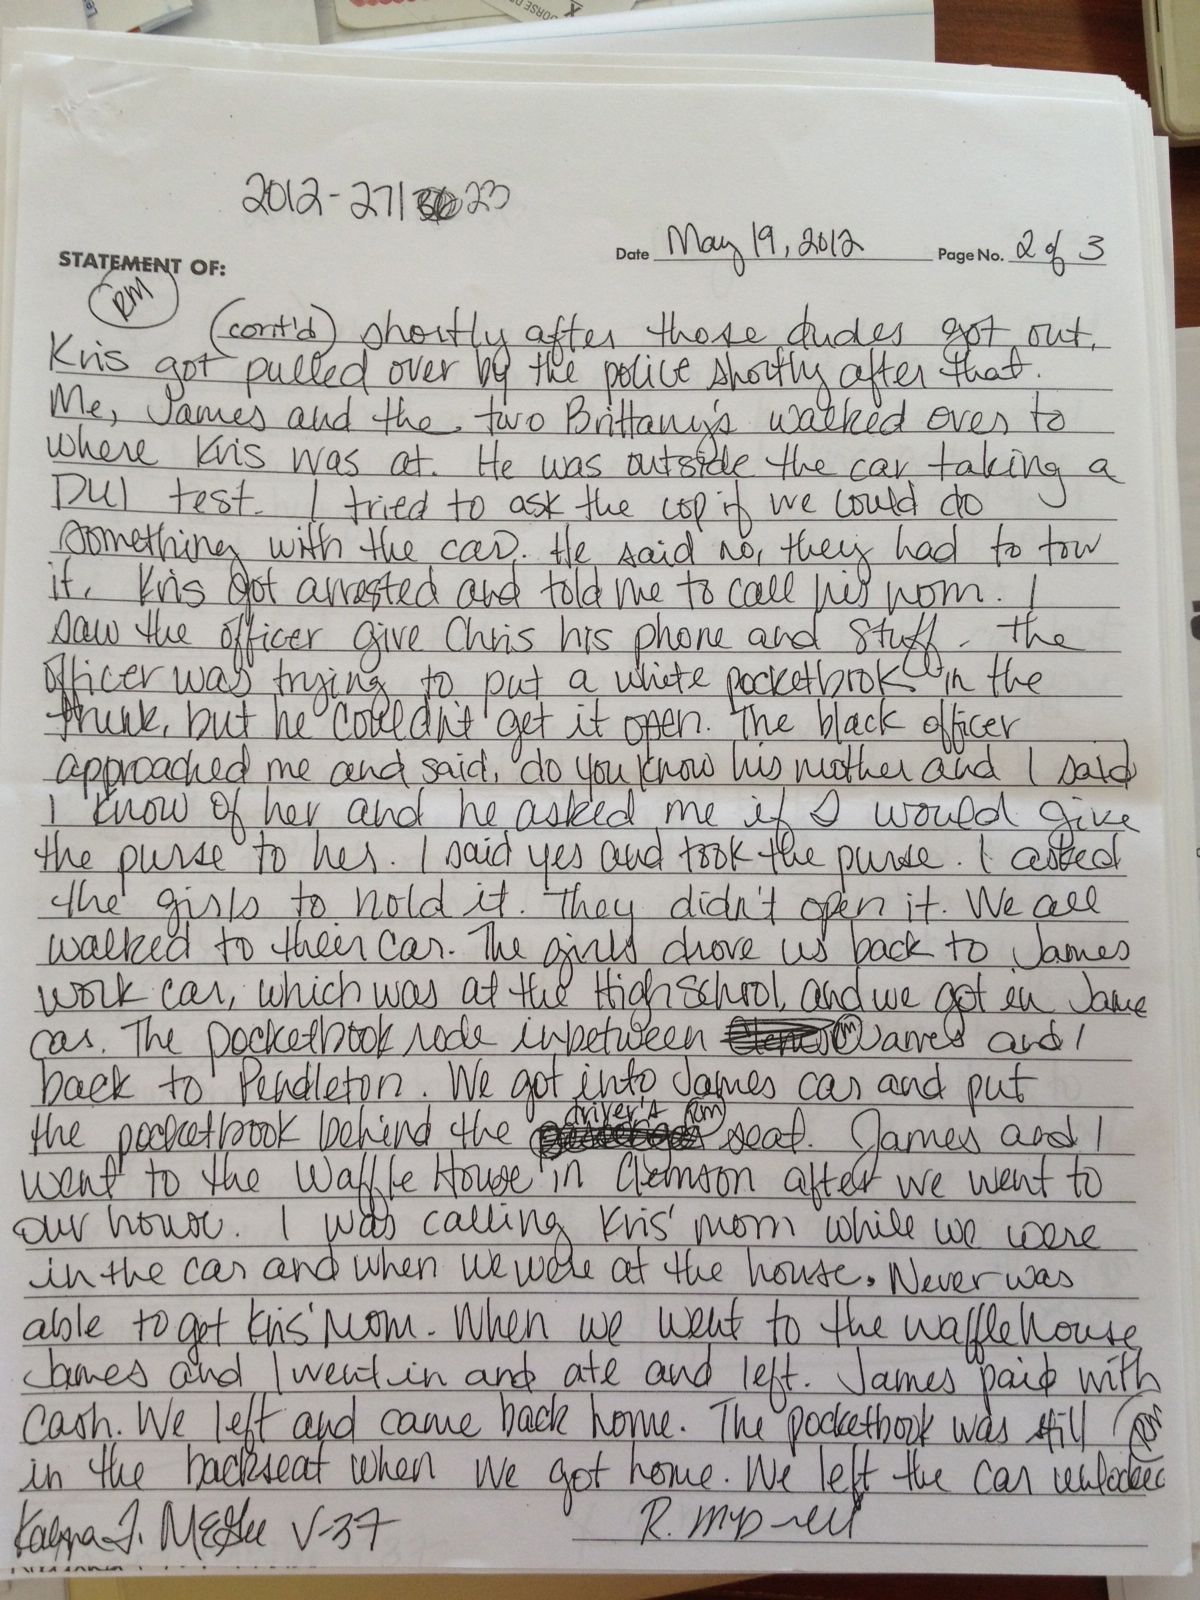 2012-271 23
STATEMENT OF:
Date May 19, 2012 Page No. 2 of 3
RM
(cont'd) shortly after those dudes got out.
Kris got pulled over by the police shortly after that.
Me, James and the two Brittany's walked over to
where Kris was at. He was outside the car taking a
DUI test. I tried to ask the cop if we could do
something with the car. He said no, they had to tow
it. Kris got arrested and told me to call his mom. I
saw the officer give Chris his phone and stuff. The
officer was trying to put a white pocketbook in the
trunk, but he couldn't get it open. The black officer
approached me and said, do you know his mother and I said
I know of her and he asked me if I would give
the purse to her. I said yes and took the purse. I asked
the girls to hold it. They didn't open it. We all
walked to their car. The girls drove us back to James
work car, which was at the High School, and we got in Jame
car. The pocketbook rode inbetween RM James and I
back to Pendleton. We got into James car and put
the pocketbook behind the driver's RM seat. James and I
went to the Waffle House in Clemson after we went to
our house. I was calling Kris' mom while we were
in the car and when we were at the house. Never was
able to get Kris' Mom. When we went to the waffle house
James and I went in and ate and left. James paid with
cash. We left and came back home. The pocketbook was still RM
in the backseat when we got home. We left the car unlocked
V-37
R.